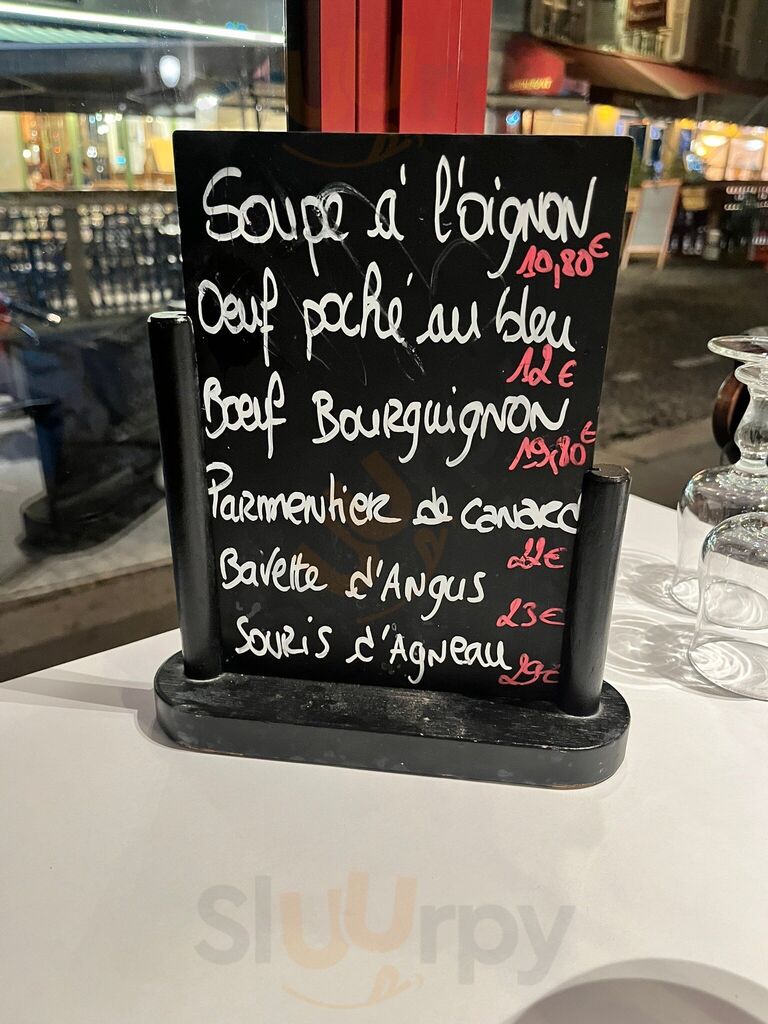 Soupe à l'oignon
10,80€
Oeuf poché au bleu
12€
Boeuf Bourguignon
19,80€
Parmentier de canard
22€
Bavette d'Angus
23€
Souris d'Agneau
29€
Sluurpy